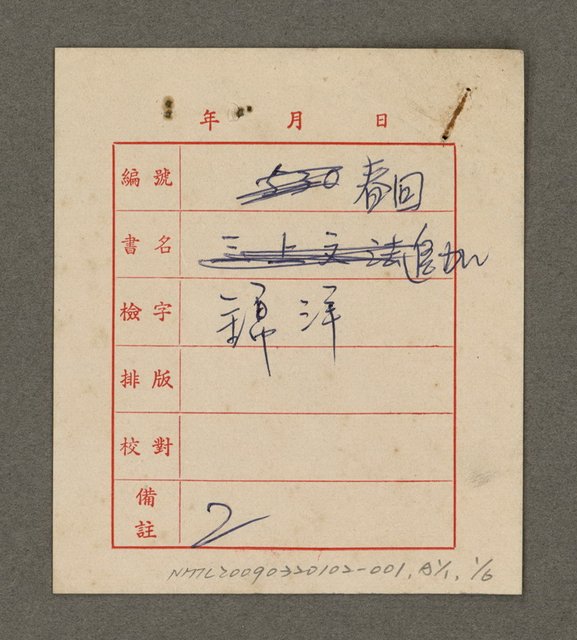 年 月 日
編號 530 春回
書名 三上文法追加
檢字 錦洋
排版
校對
備註 2
NMTL20090320102-001, A1/1, 1/6